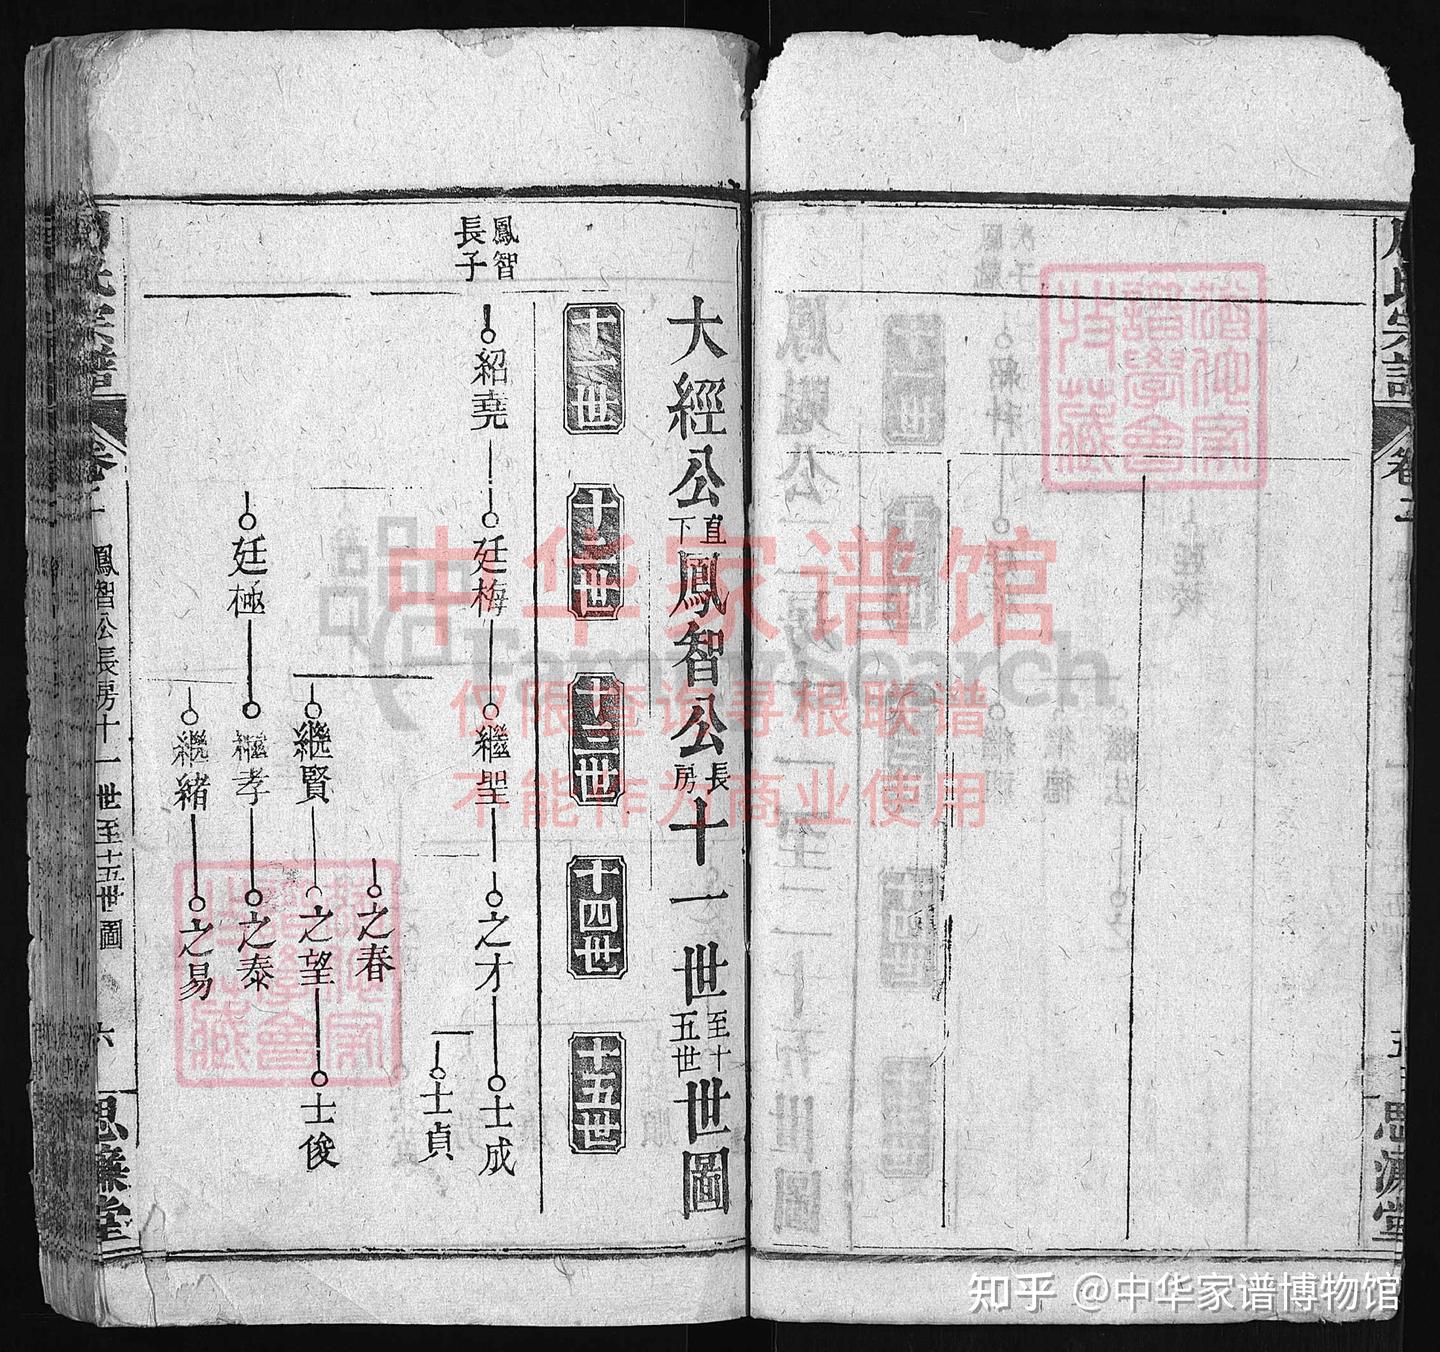 周氏宗譜
卷二
五
思濂堂
大經公直下鳳智公長房十一世至十五世世圖
十一世
十二世
十三世
十四世
十五世
鳳智
長子
紹堯
廷梅
繼聖
之才
士成
士貞
之春
繼賢
之望
士俊
廷極
繼孝
之泰
繼緒
之易
氏宗譜
卷二
鳳智公長房十一世至十五世圖
六
思濂堂
中华家谱馆
FamilySearch
仅限查询寻根联谱
不能作为商业使用
知乎 @中华家谱博物馆